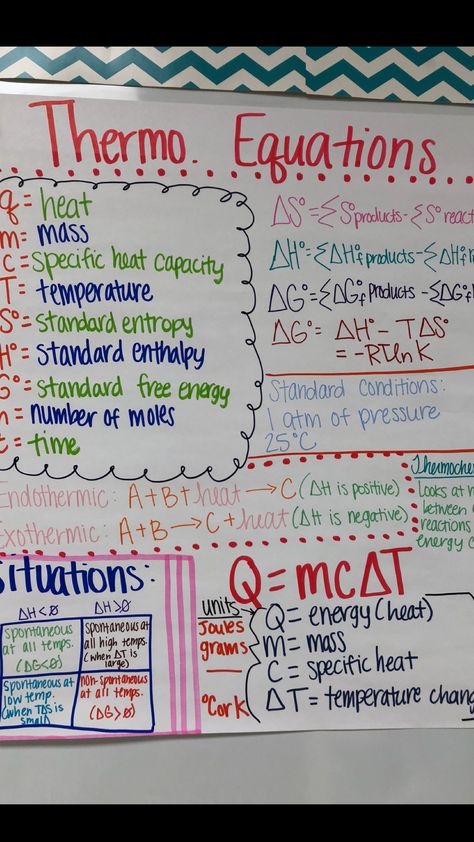 Thermo. Equations
q = heat
m = mass
C = specific heat capacity
T = temperature
S° = standard entropy
H° = standard enthalpy
G° = standard free energy
n = number of moles
t = time
ΔS° = ΣS°products - ΣS° react
ΔH° = ΣΔH°f products - ΣΔH°f
ΔG° = ΣΔG°f products - ΣΔG°f
ΔG° = ΔH° - TΔS°
= -RTlnK
Standard Conditions:
1 atm of pressure
25°C
Endothermic: A+B+heat → C (ΔH is positive)
Exothermic: A+B → C + heat (ΔH is negative)
Thermoche
Looks at
between
reactions
energy c
Situations:
ΔH<0 ΔH>0
spontaneous
at all temps.
(ΔG<0)
spontaneous at
all high temps.
(when ΔT is
large)
spontaneous at
low temp.
(when TΔS is
small)
non-spontaneous
at all temps.
(ΔG>0)
Q=mcΔT
units
Joules
grams
—
°C or K
Q = energy (heat)
m = mass
C = specific heat
ΔT = temperature chang